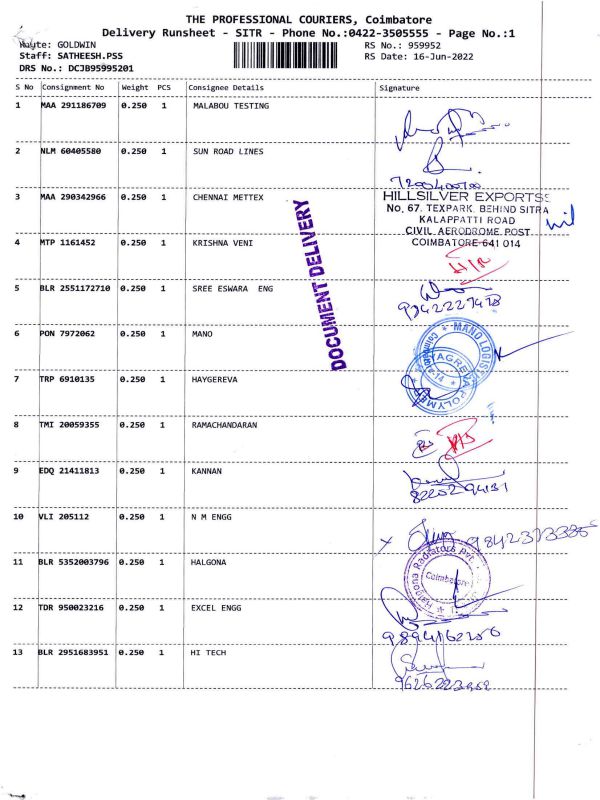 THE PROFESSIONAL COURIERS, Coimbatore
Delivery Runsheet - SITR - Phone No.:0422-3505555 - Page No.:1
Route: GOLDWIN
RS No.: 959952
Staff: SATHEESH.PSS
RS Date: 16-Jun-2022
DRS No.: DCJB95995201
S No Consignment No Weight PCS Consignee Details Signature
1 MAA 291186709 0.250 1 MALABOU TESTING
2 NLM 60405580 0.250 1 SUN ROAD LINES
3 MAA 290342966 0.250 1 CHENNAI METTEX
HILLSILVER EXPORTS
No. 67, TEXPARK, BEHIND SITRA
KALAPPATTI ROAD
CIVIL AERODROME POST
COIMBATORE-641 014
nil
DOCUMENT DELIVERY
4 MTP 1161452 0.250 1 KRISHNA VENI
5 BLR 2551172710 0.250 1 SREE ESWARA ENG
6 PON 7972062 0.250 1 MANO
MANO LOGISTI
7 TRP 6910135 0.250 1 HAYGEREVA
YAGREVA POLYME
8 TMI 20059355 0.250 1 RAMACHANDARAN
9 EDQ 21411813 0.250 1 KANNAN
10 VLI 205112 0.250 1 N M ENGG
11 BLR 5352003796 0.250 1 HALGONA
Halgona Radiators Pvt.
Coimbatore
12 TDR 950023216 0.250 1 EXCEL ENGG
13 BLR 2951683951 0.250 1 HI TECH